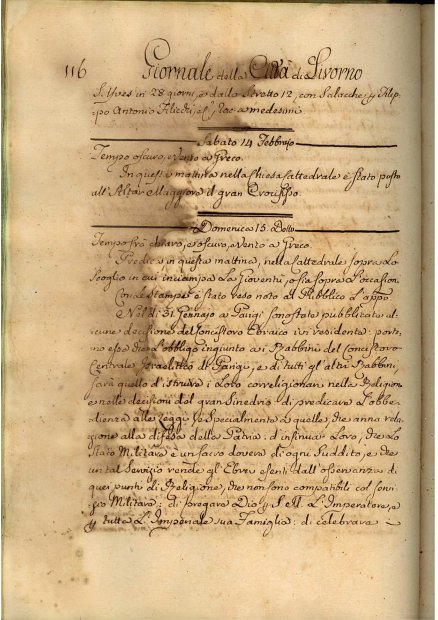 116 Giornale della Città di Livorno
S. Yves in 28 giorni, e dallo Stretto 12, con Salacche, p. Filip-
po Antonio Filicchi, e f. rac. a medesimi
Sabato 14 Febbrajo
Tempo oscuro, e Vento a Greco.
In questa mattina nella Chiesa Cattedrale è stato posto
all'Altar Maggiore il gran Crocifisso.
Domenica 15. Detto
Tempo frà chiaro, e oscuro, e Vento a Greco.
Predica in questa mattina, nella Cattedrale sopra Lo
Scoglio in cui inciampa La Gioventù, o sia sopra l'occasion
Con le Stampe è stato reso noto al Pubblico q.to app.o
Nel dì: 31 Gennajo a Parigi sono state pubblicate al-
cune decisione del Concistoro Ebraico ivi residente: porta-
no esse che L'obbligo ingiunto ai Rabbini del Concistoro
Centrale Israelitico di Parigi, e di tutti gl'altri Rabbini,
sarà quello d'istruire i Loro correligionari nella Religione
e nelle decisioni del gran Sinedrio di predicare L'obbe-
dienza alle Leggi, e Specialmente a quelle, che anno rela-
zione alla difesa della Patria: d'insinuar Loro, che Lo
Stato Militare è un sacro dovere di ogni Suddito, e che
un tal Servizio rende gli Ebrei esenti dall'osservanza di
quei punti di Religione, che non sono compatibili col servi-
zio Militare: di pregare Dio p. S. M. L'Imperatore, e
p. tutta L'Imperiale sua Famiglia: di celebrare